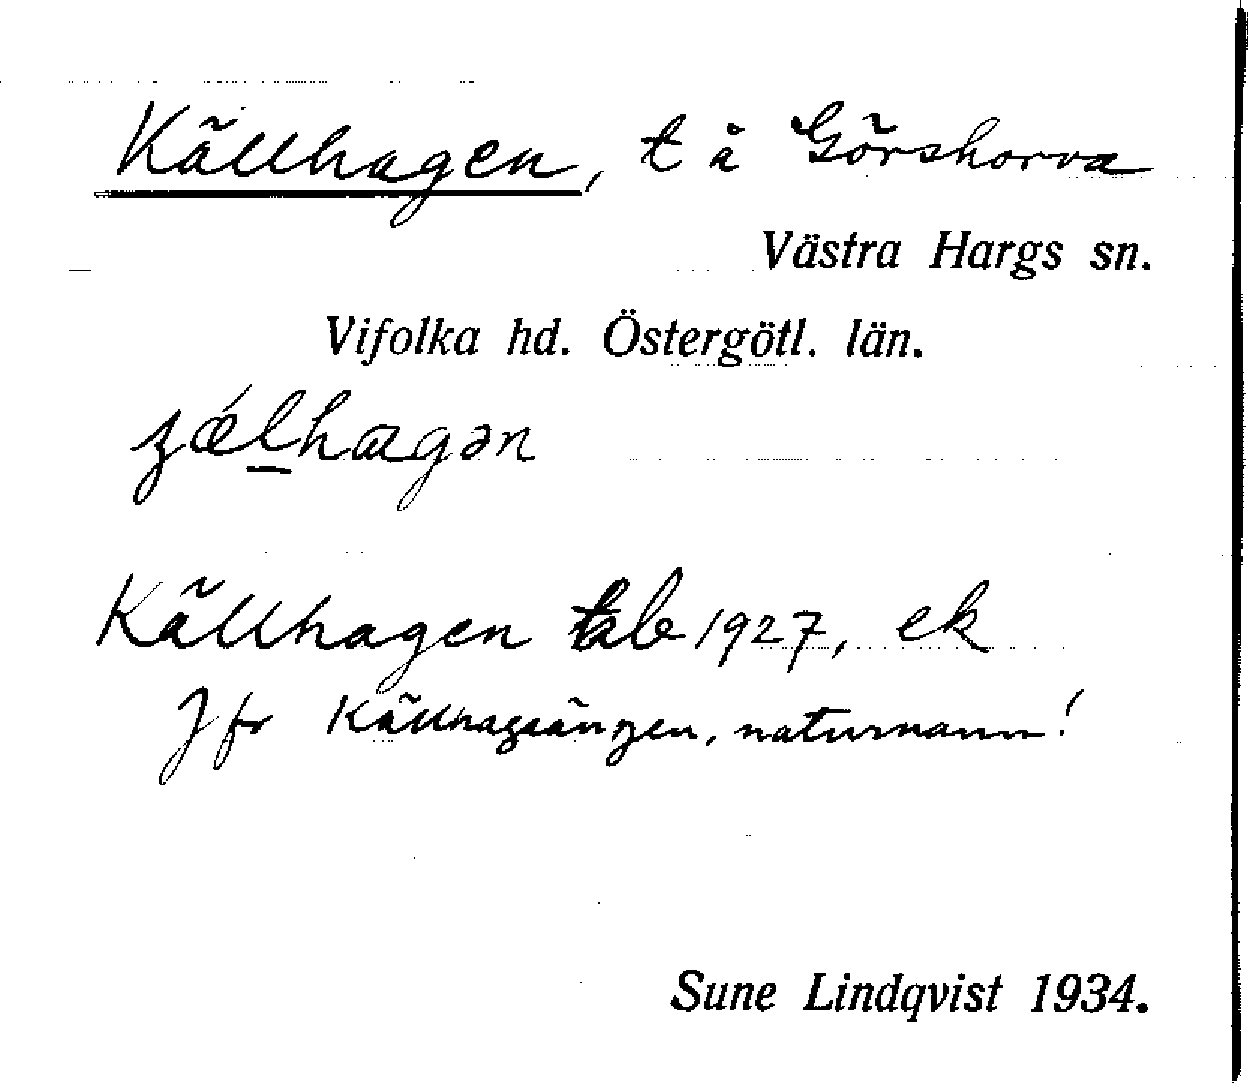 Källhagen, t å Görshorva
Västra Hargs sn.
Vifolka hd. Östergötl. län.
ʒǽlhagən
Källhagen tab 1927, ek
Jfr Källhagsängen, naturnamn!
Sune Lindqvist 1934.